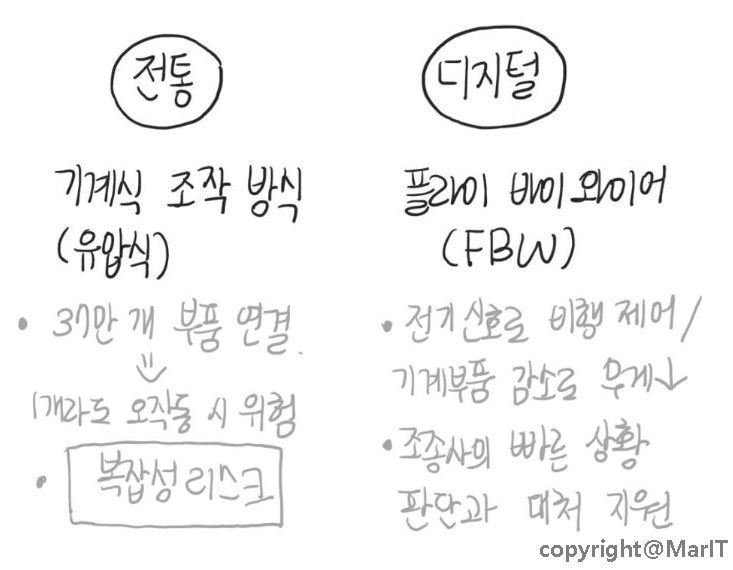 전통
기계식 조작 방식
(유압식)
• 37만 개 부품 연결
⇓
1개라도 오작동 시 위험
• 복잡성 리스크
디지털
플라이 바이 와이어
(FBW)
• 전기신호로 비행 제어/
기계부품 감소로 무게↓
• 조종사의 빠른 상황
판단과 대처 지원
copyright@MarIT